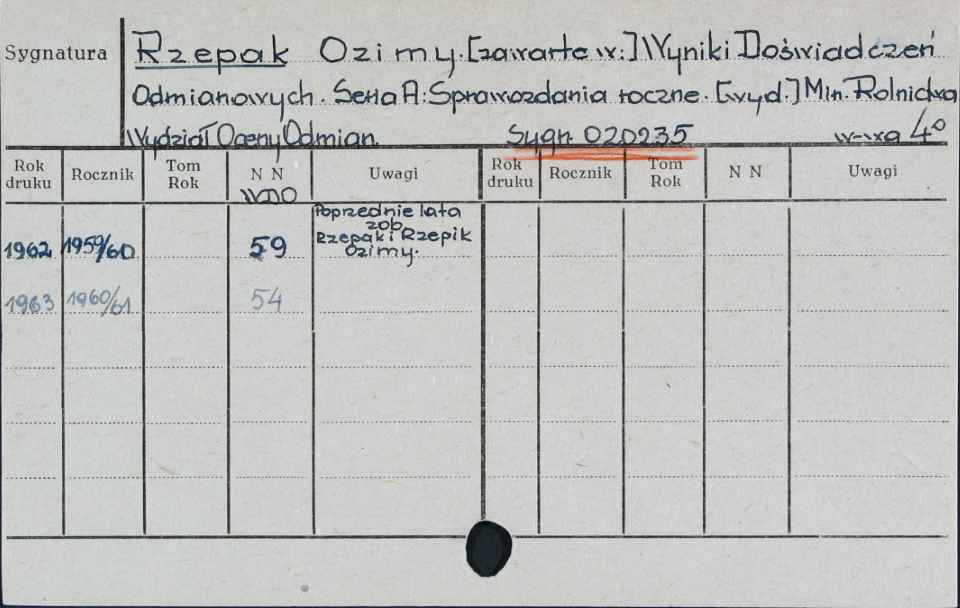 Sygnatura
Rzepak Ozimy. [zawarte w:] Wyniki Doświadczeń
Odmianowych. Seria A: Sprawozdania roczne. [wyd.] Min. Rolnictwa
Wydział Oceny Odmian. Sygn. 020235 w-wa 4°
Rok druku Rocznik Tom Rok N N Uwagi Rok druku Rocznik Tom Rok N N Uwagi
WDO
Poprzednie lata
zob.
Rzepak i Rzepik
Ozimy.
1962 1959/60 59
1963 1960/61 54